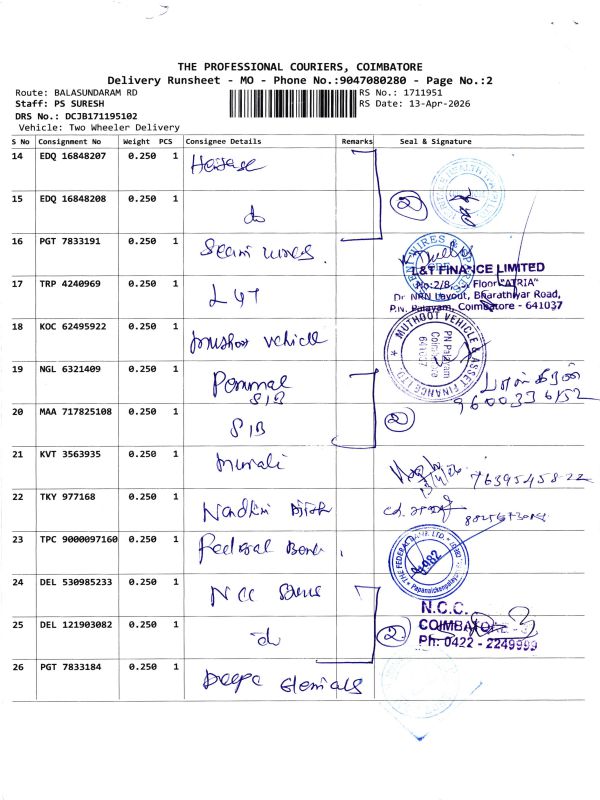 THE PROFESSIONAL COURIERS, COIMBATORE
Delivery Runsheet - MO - Phone No.:9047080280 - Page No.:2
Route: BALASUNDARAM RD
RS No.: 1711951
Staff: PS SURESH
RS Date: 13-Apr-2026
DRS No.: DCJB171195102
Vehicle: Two Wheeler Delivery
S No Consignment No Weight PCS Consignee Details Remarks Seal & Signature
14 EDQ 16848207 0.250 1
15 EDQ 16848208 0.250 1 do 2
16 PGT 7833191 0.250 1
L&T FINANCE LIMITED
17 TRP 4240969 0.250 1 L&T
No:2/8, Floor "ATRIA"
Dr. NRN Layout, Bharathiyar Road,
P.N. Palayam, Coimbatore - 641037
18 KOC 62495922 0.250 1 vehicle
MUTHOOT VEHICLE & ASSET FINANCE LTD.
PN Palayam
Coimbatore
641037
19 NGL 6321409 0.250 1
SIB
9600336152
20 MAA 717825108 0.250 1 SIB 2
21 KVT 3563935 0.250 1 murali
13/4/26
7639545822
22 TKY 977168 0.250 1
23 TPC 9000097160 0.250 1 Federal Bank
THE FEDERAL BANK LTD.
24 DEL 530985233 0.250 1 NCC
N.C.C.
25 DEL 121903082 0.250 1 do 2
COIMBATORE
Ph: 0422 - 2249999
26 PGT 7833184 0.250 1 Deepa